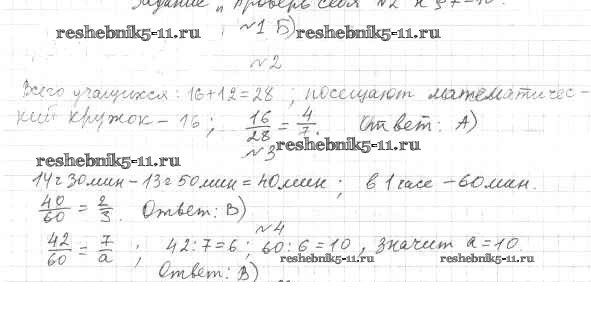 Задание "Проверь себя №2 к §7-10.
№1 Б)
reshebnik5-11.ru reshebnik5-11.ru
№2
Всего учащихся: 16+12=28 ; посещают математичес-
кий кружок - 16 ; 16/28 = 4/7. Ответ: А)
reshebnik5-11.ru
№3
reshebnik5-11.ru
14ч30мин - 13ч50мин = 40мин ; в 1 часе - 60мин.
40/60 = 2/3. Ответ: В)
№4
42/60 = 7/a ; 42:7=6 ; 60:6=10 , значит a=10.
reshebnik5-11.ru reshebnik5-11.ru
Ответ: В)